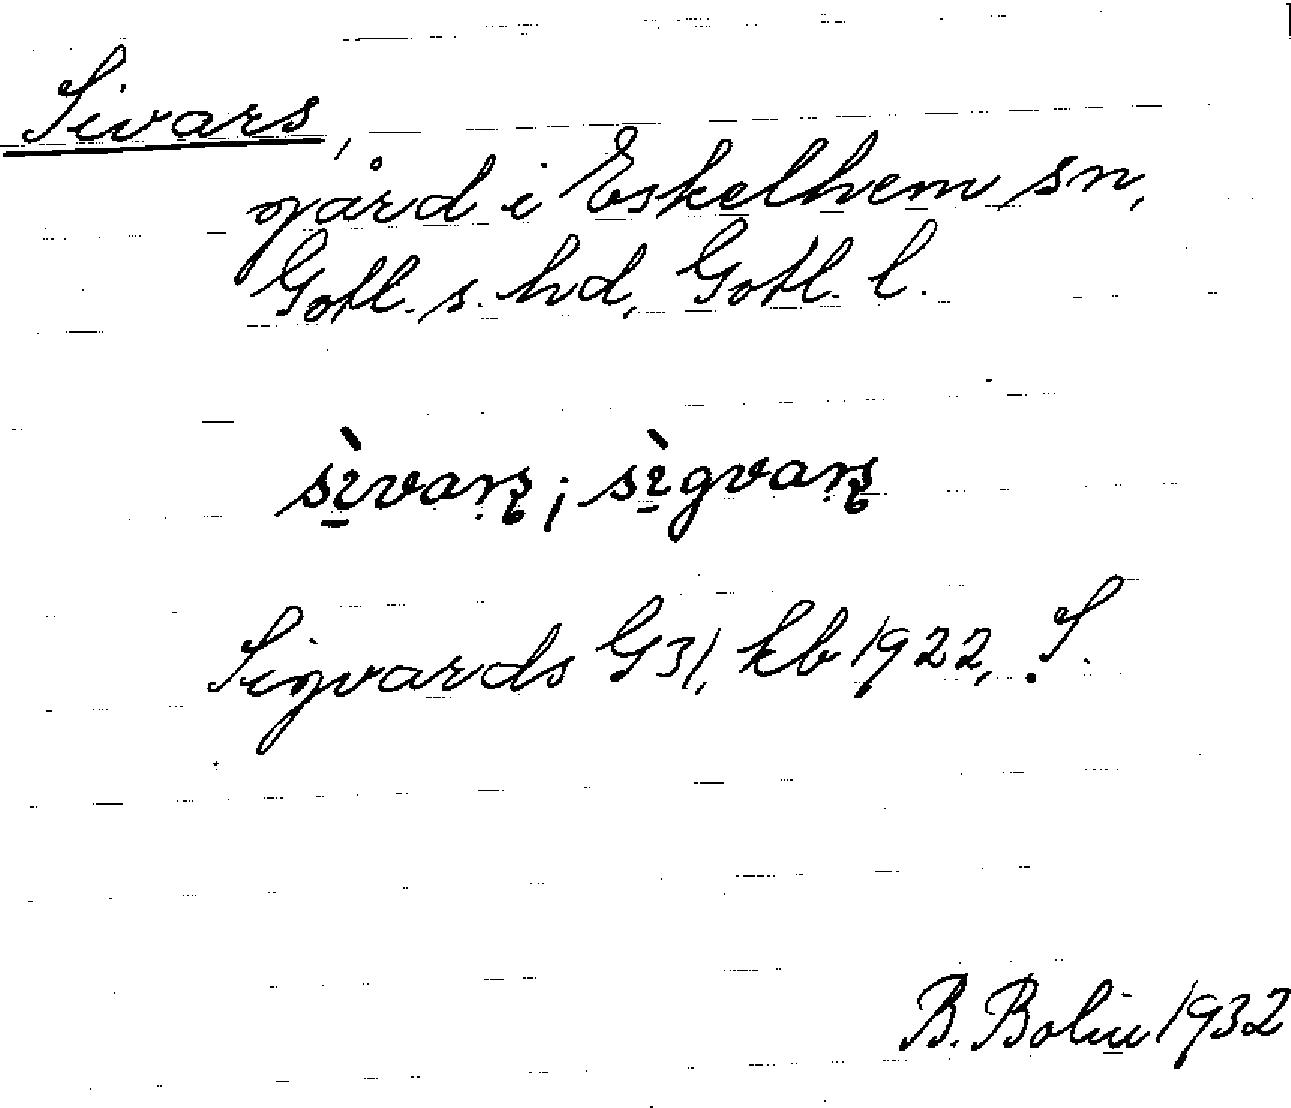 Sivars,
gård i Eskelhem sn,
Gotl. s. hd, Gotl. l.
sìvarș; sìgvarș
Sigvards G31, kb 1922, S.
B. Bolin 1932